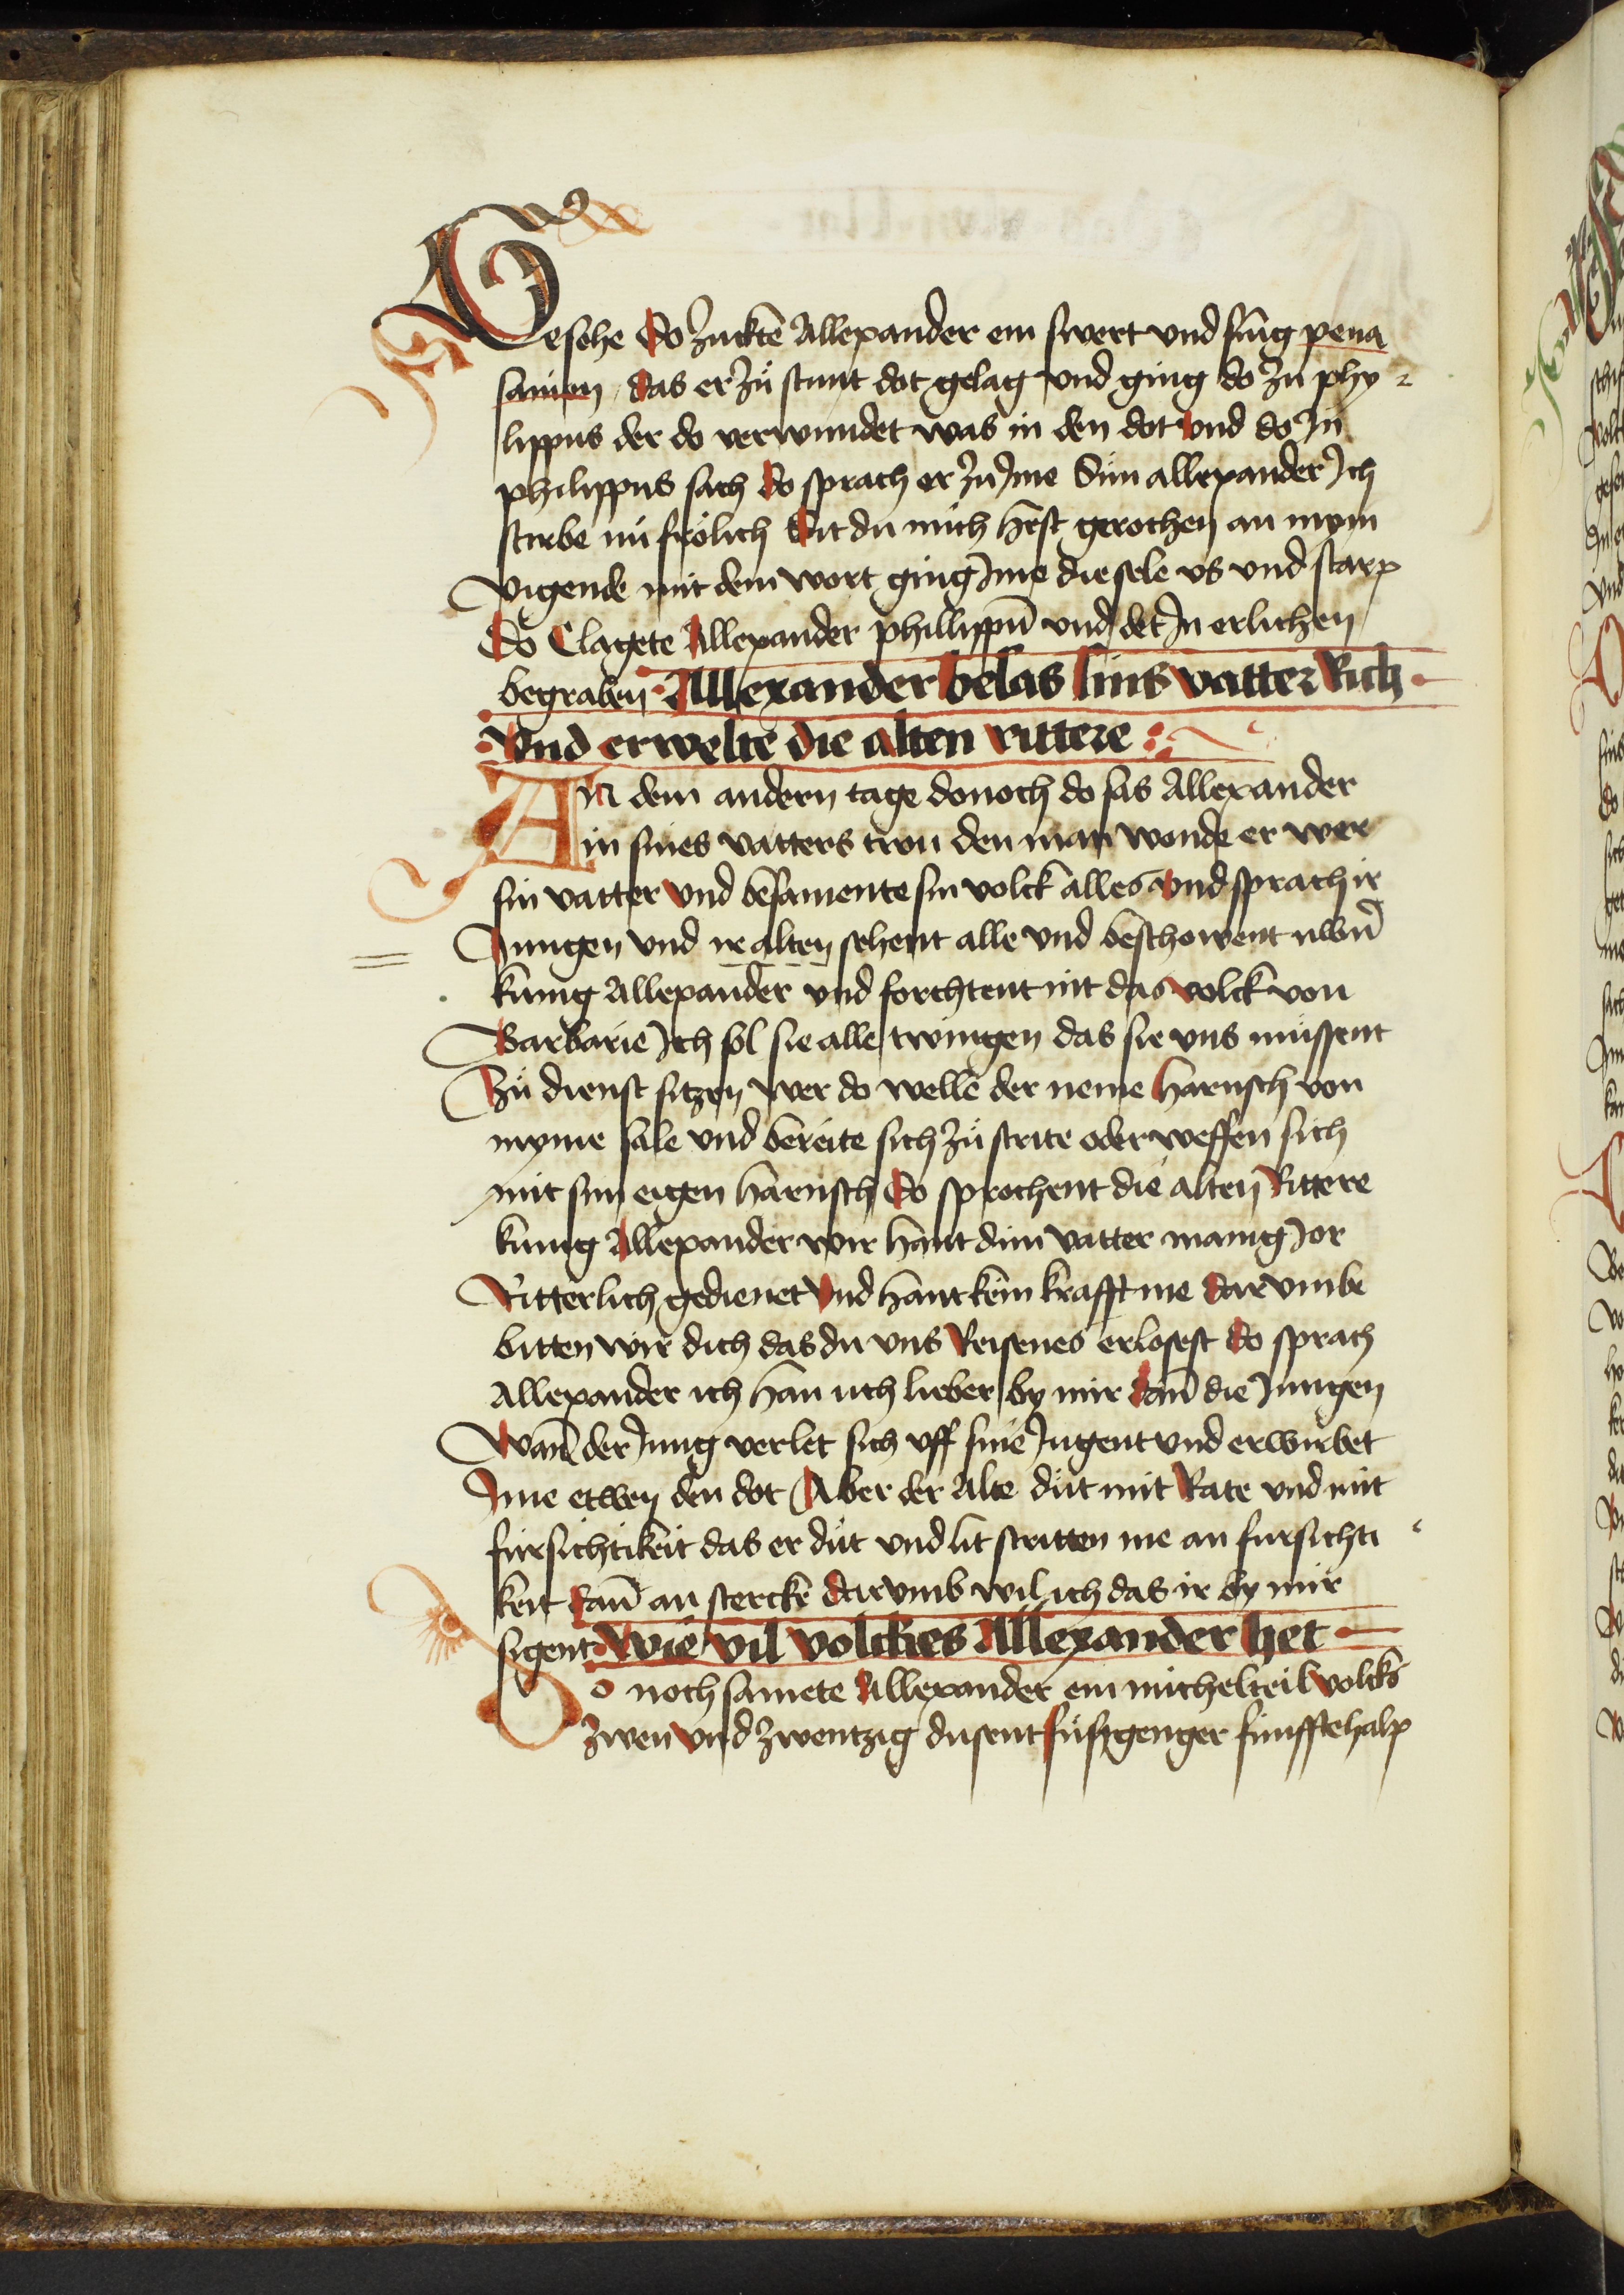 Gesche do Zuckte Allexander ein swert und slug pena
samen / das er zu stunt dot gelag und ging do zu phy
lippus der do verwundet was in den dot und do In
philippus sach do sprach er zu Ime Sun allexander Ich
stirbe nu frölich Sit du mich hest gerochen an mym
vigende mit dem wort ging Ime die sele vs und starp
Do Clagete Allexander phillippū und det In erlichen
begraben Allexander besas sins vatter Rich
Vnd erwelte die alten rittere
An dem andern tage donoch do sas Allexander
in sines vatters tron den man wonde er wer
sin vatter und besamente sin volck alles und sprach ir
Jungen vnd ir alten sehent alle vnd beschowent uwn
kunig Allexander vnd forchtent nit das volck von
Barbarie Ich sol sie alle twingen das sie vns müssent
Zu dienst sitzen wer do welle der neme harnsch von
myme sale vnd bereite sich zu strite oder weffen sich
mit sim eigen harnsch do sprochent die alten Rittere
kunig Allexander wir hant dim vatter manig Jor
Ritterlich gedienet Vnd hant kein krafft me dar vmbe
bitten wir dich das du vns Reisenes erlosest do sprach
Allexander ich han uch lieber by mir dañ die Jungen
Wañ der Jung verlet sich vff sine Jugent vnd erwirbet
Ime etwen den dot Aber der Alte düt mit Rate vnd mit
fürsichtikeit das er düt vnd lit stritten me an fursichti
keit dañ an stercke dar vmb wil ich das ir by mir
sigent Wie vil volckes Allexander het
Do noch samete Allexander ein michelteil volcks
zwen vnd zwentzig dusent füsgenger fünfftehalp